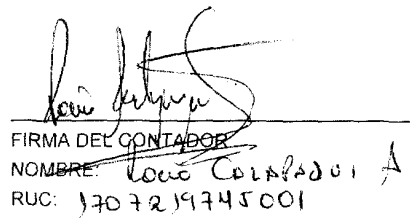 FIRMA DEL CONTADOR
NOMBRE: Rocío A
RUC: 1707219745001